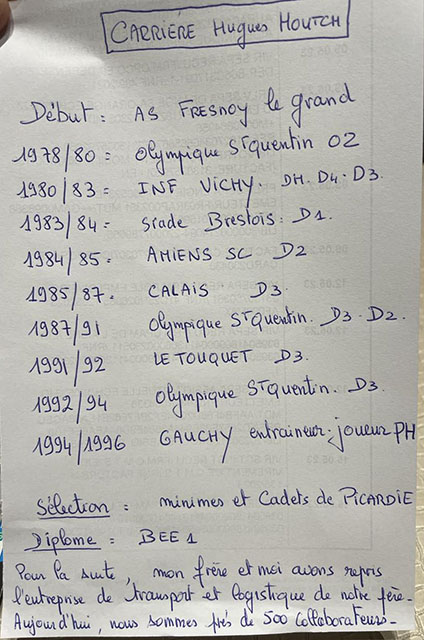 CARRIÈRE Hugues HOUTCH
Début : AS FRESNOY le grand
1978/80 = Olympique St Quentin 02
1980/83 = INF VICHY. DH. D4. D3.
1983/84 = Stade Brestois. D1.
1984/85 = AMIENS SC D2
1985/87 = CALAIS D3
1987/91 Olympique St Quentin. D3. D2.
1991/92 LE TOUQUET D3.
1992/94 Olympique St Quentin. D3.
1994/1996 GAUCHY entraineur-joueur PH
Sélection : minimes et Cadets de PICARDIE
Diplome = BEE1
Pour la suite, mon frère et moi avons repris
l'entreprise de transport et logistique de notre père.
Aujourd'hui, nous sommes près de 500 collaborateurs.